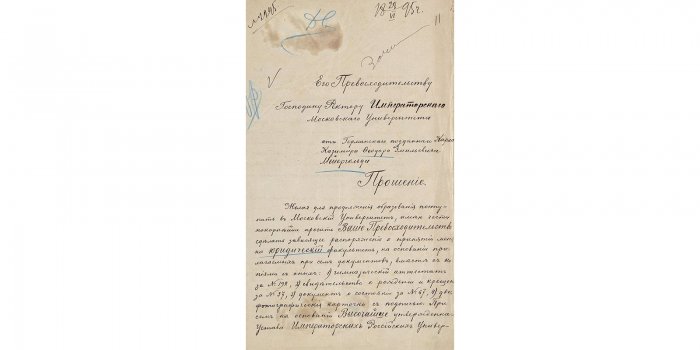 № 2295
18 28/VI 95 г.
11
Его Превосходительству
Господину Ректору Императорскаго
Московскаго Университета
отъ Германскаго подданнаго Карла
Казимира Ѳеодора Эмильевича
Мейергольдъ
Прошеніе.
Желая для продолженія образованія посту-
пить въ Московскій Университетъ, имѣю честь
покорнѣйше просить Ваше Превосходительство
сдѣлать зависящее распоряженіе о принятіи меня
на юридическій факультетъ, на основаніи при-
лагаемыхъ при семъ документовъ, вмѣстѣ съ ко-
піями съ оныхъ: 1) гимназическій аттестатъ
за № 198, 2) свидѣтельство о рожденіи и крещеніи
за № 37, 3) документъ о состояніи за № 67, 4) двѣ
фотографическія карточки съ подписью. При
семъ на основаніи Высочайше утвержденнаго
Устава Императорскихъ Россійскихъ Универ-